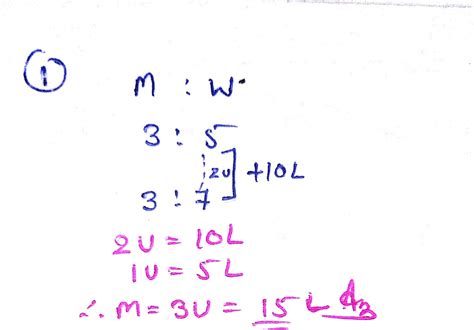 ①
M : W
3 : 5
2U] +10L
3 : 7
2U = 10L
1U = 5L
∴ M = 3U = 15 L